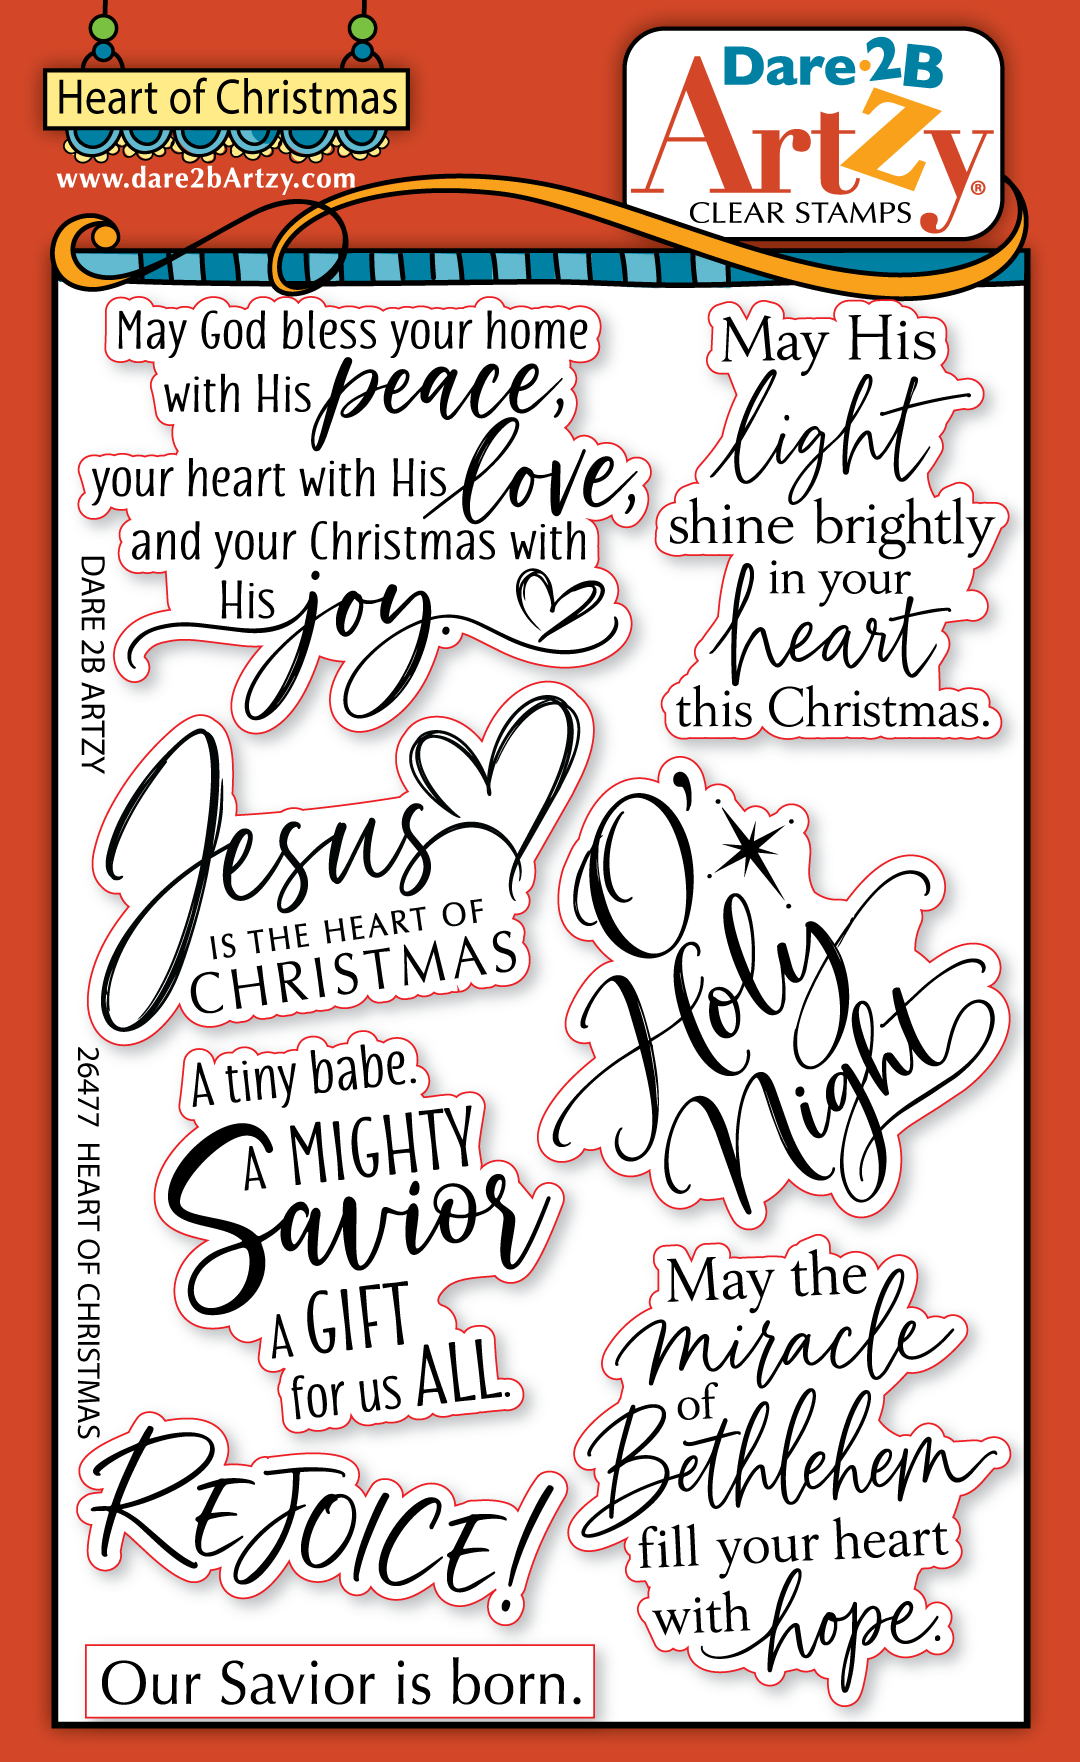 Heart of Christmas
www.dare2bArtzy.com
Dare·2B
ArtZy®
CLEAR STAMPS
May God bless your home
with His peace,
your heart with His love,
and your Christmas with
His joy.
May His
light
shine brightly
in your
heart
this Christmas.
DARE 2B ARTZY
Jesus
IS THE HEART OF
CHRISTMAS
O'
Holy
Night
A tiny babe.
A MIGHTY
Savior
A GIFT
for us ALL.
26477 HEART OF CHRISTMAS
May the
miracle
of
Bethlehem
fill your heart
with hope.
REJOICE!
Our Savior is born.